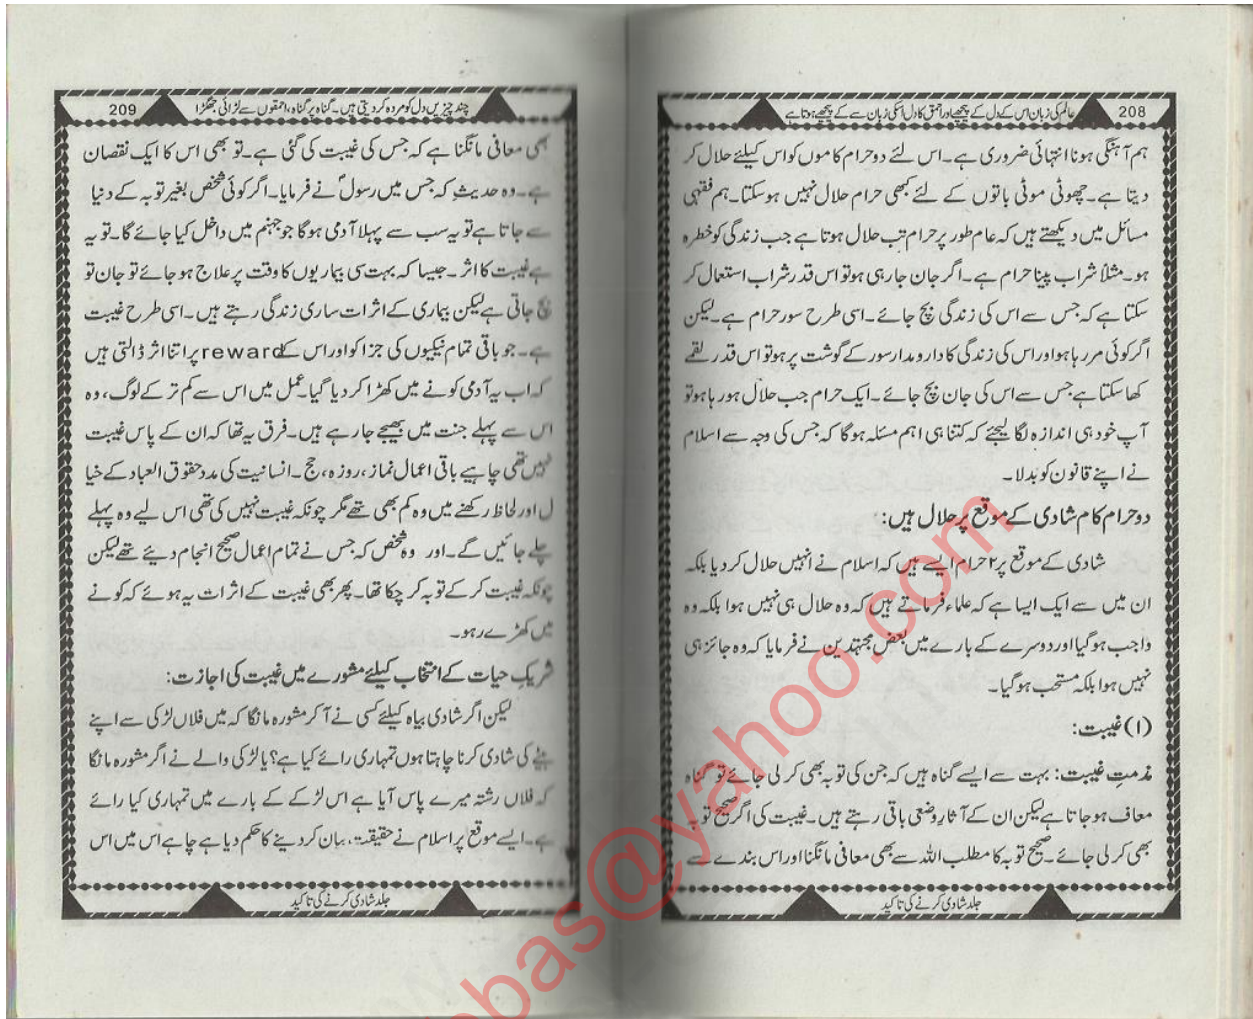 208
عالم کی زبان اس کے دل کے پیچھے اور احمق کا دل اسکی زبان سے کے پیچھے ہوتا ہے
ہم آہنگی ہونا انتہائی ضروری ہے۔ اس لئے دو حرام کاموں کو اس کیلئے حلال کر
دیتا ہے۔ چھوٹی موٹی باتوں کے لئے کبھی حرام حلال نہیں ہو سکتا۔ ہم فقہی
مسائل میں دیکھتے ہیں کہ عام طور پر حرام تب حلال ہوتا ہے جب زندگی کو خطرہ
ہو۔ مثلاً شراب پینا حرام ہے۔ اگر جان جا رہی ہو تو اس قدر شراب استعمال کر
سکتا ہے کہ جس سے اس کی زندگی بچ جائے۔ اسی طرح سور حرام ہے۔ لیکن
اگر کوئی مر رہا ہو اور اس کی زندگی کا دارومدار سور کے گوشت پر ہو تو اس قدر لقمے
کھا سکتا ہے جس سے اس کی جان بچ جائے۔ ایک حرام جب حلال ہو رہا ہو تو
آپ خود ہی اندازہ لگا لیجئے کہ کتنا ہی اہم مسئلہ ہوگا کہ جس کی وجہ سے اسلام
نے اپنے قانون کو بدلا۔
دو حرام کام شادی کے موقع پر حلال ہیں:
شادی کے موقع پر ۲ حرام ایسے ہیں کہ اسلام نے انہیں حلال کر دیا بلکہ
ان میں سے ایک ایسا ہے کہ علماء فرماتے ہیں کہ وہ حلال ہی نہیں ہوا بلکہ وہ
واجب ہو گیا اور دوسرے کے بارے میں بعض مجتہدین نے فرمایا کہ وہ جائز ہی
نہیں ہوا بلکہ مستحب ہو گیا۔
(۱) غیبت:
مذمتِ غیبت: بہت سے ایسے گناہ ہیں کہ جن کی توبہ بھی کر لی جائے تو گناہ
معاف ہو جاتا ہے لیکن ان کے آثارِ وضعی باقی رہتے ہیں۔ غیبت کی اگر صحیح توبہ
بھی کر لی جائے۔ صحیح توبہ کا مطلب اللہ سے بھی معافی مانگنا اور اس بندے سے
جلد شادی کرنے کی تاکید
209
چند چیزیں دل کو مردہ کر دیتی ہیں۔ گناہ پر گناہ، احمقوں سے لڑائی جھگڑا
بھی معافی مانگنا ہے کہ جس کی غیبت کی گئی ہے۔ تو بھی اس کا ایک نقصان
ہے۔ وہ حدیث کہ جس میں رسولؐ نے فرمایا۔ اگر کوئی شخص بغیر توبہ کے دنیا
سے جاتا ہے تو یہ سب سے پہلا آدمی ہوگا جو جہنم میں داخل کیا جائے گا۔ تو یہ
ہے غیبت کا اثر۔ جیسا کہ بہت سی بیماریوں کا وقت پر علاج ہو جائے تو جان تو
بچ جاتی ہے لیکن بیماری کے اثرات ساری زندگی رہتے ہیں۔ اسی طرح غیبت
ہے۔ جو باقی تمام نیکیوں کی جزا کو اور اس کے reward پر اتنا اثر ڈالتی ہیں
کہ اب یہ آدمی کونے میں کھڑا کر دیا گیا۔ عمل میں اس سے کم تر کے لوگ، وہ
اس سے پہلے جنت میں بھیجے جا رہے ہیں۔ فرق یہ تھا کہ ان کے پاس غیبت
نہیں تھی چاہیے باقی اعمال نماز، روزہ، حج۔ انسانیت کی مدد حقوق العباد کے خیا
ل اور لحاظ رکھنے میں وہ کم بھی تھے مگر چونکہ غیبت نہیں کی تھی اس لیے وہ پہلے
چلے جائیں گے۔ اور وہ شخص کہ جس نے تمام اعمال صحیح انجام دیئے تھے لیکن
چونکہ غیبت کر کے توبہ کر چکا تھا۔ پھر بھی غیبت کے اثرات یہ ہوئے کہ کونے
میں کھڑے رہو۔
شریک حیات کے انتخاب کیلئے مشورے میں غیبت کی اجازت:
لیکن اگر شادی بیاہ کیلئے کسی نے آ کر مشورہ مانگا کہ میں فلاں لڑکی سے اپنے
بیٹے کی شادی کرنا چاہتا ہوں تمہاری رائے کیا ہے؟ یا لڑکی والے نے اگر مشورہ مانگا
کہ فلاں رشتہ میرے پاس آیا ہے اس لڑکے کے بارے میں تمہاری کیا رائے
ہے۔ ایسے موقع پر اسلام نے حقیقت بیان کر دینے کا حکم دیا ہے چاہے اس میں اس
جلد شادی کرنے کی تاکید
bas@yahoo.com